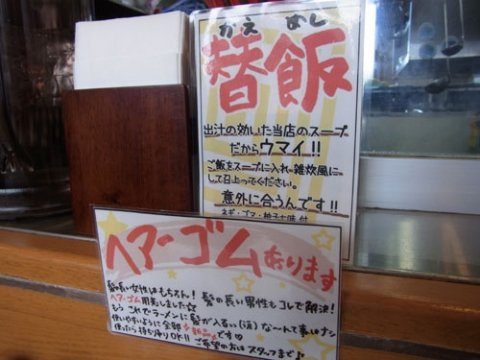 かえ めし
替飯
出汁の効いた当店のスープ
だからウマイ!!
ご飯をスープに入れ雑炊風に
して召上ってください。
意外に合うんです!!
ネギ・ゴマ・柚子七味 付
ヘアーゴム あります
髪の長い女性はもちろん! 髪の長い男性もコレで解決!
ヘアーゴム用意しました☆
もう これでラーメンに髪が入るぃ(泣) な〜んて事いナシ
使いやすいように全部 新品です♡
使ったら持ち帰りOK!! ご希望の方は スタッフまで♪